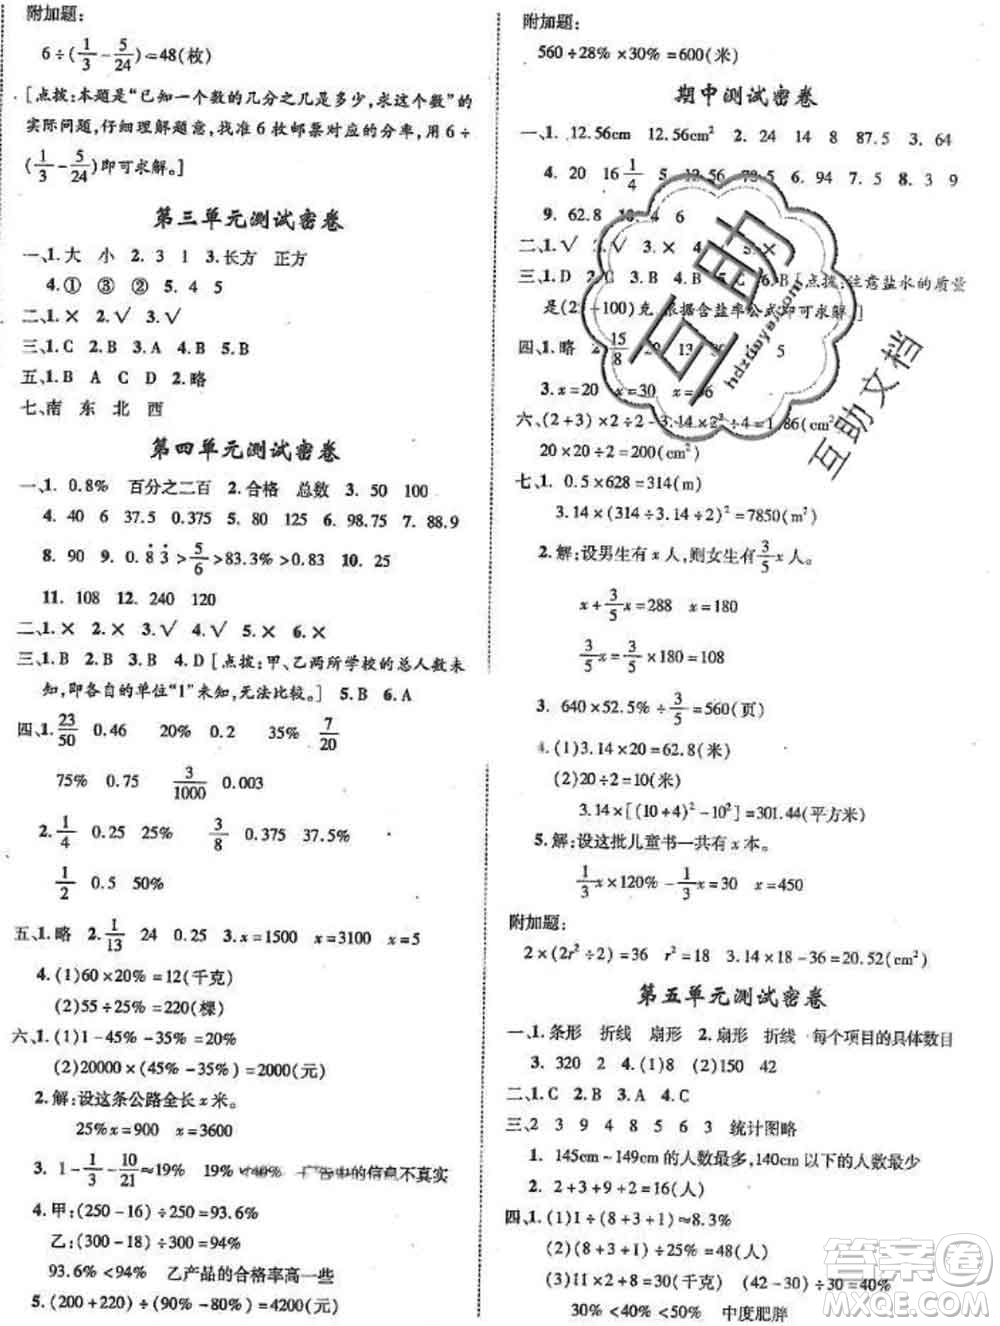 附加题:
6÷(1/3-5/24)=48(枚)
[点拨:本题是“已知一个数的几分之几是多少,求这个数”的
实际问题,仔细理解题意,找准6枚邮票对应的分率,用6÷
(1/3-5/24)即可求解。]
第三单元测试密卷
一、1.大 小 2.3 1 3.长方 正方
4.① ③ ② 5.4 5
二、1.× 2.√ 3.√
三、1.C 2.B 3.A 4.B 5.B
五、1.D A C B 2.略
七、南 东 北 西
第四单元测试密卷
一、1.0.8% 百分之二百 2.合格 总数 3.50 100
4.40 6 37.5 0.375 5.80 125 6.98.75 7.88.9
8.90 9.0.8̇3̇>5/6>83.3%>0.83 10.25
11.108 12.240 120
二、1.× 2.× 3.√ 4.√ 5.× 6.×
三、1.B 2.B 3.B 4.D[点拨:甲、乙两所学校的总人数未
知,即各自的单位“1”未知,无法比较。] 5.B 6.A
四、1.23/50 0.46 20% 0.2 35% 7/20
75% 3/1000 0.003
2.1/4 0.25 25% 3/8 0.375 37.5%
1/2 0.5 50%
五、1.略 2.1/13 24 0.25 3.x=1500 x=3100 x=5
4.(1)60×20%=12(千克)
(2)55÷25%=220(棵)
六、1.(1)1-45%-35%=20%
(2)20000×(45%-35%)=2000(元)
2.解:设这条公路全长x米。
25%x=900 x=3600
3.1-1/3-10/21≈19% 19%<40% 广告中的信息不真实
4.甲:(250-16)÷250=93.6%
乙:(300-18)÷300=94%
93.6%<94% 乙产品的合格率高一些
5.(200+220)÷(90%-80%)=4200(元)
附加题:
560÷28%×30%=600(米)
期中测试密卷
一、1.12.56cm 12.56cm² 2.24 14 8 87.5 3.64
4.20 16 1/4 5.12.56 6.94 7.5 8.3 9
9.62.8 10.4 6
二、1.√ 2.√ 3.× 4.× 5.×
三、1.D 2. 3.B 4.B 5.C 6.B[点拨:注意盐水的质量
是(2 +100)克,依据含盐率公式即可求解。]
四、1.略 2.15/8 28 13 5
3.x=20 x=30 x=36
六、(2+3)×2÷2-3.14×2²÷4=1.86(cm²)
20×20÷2=200(cm²)
七、1.0.5×628=314(m)
3.14×(314÷3.14÷2)²=7850(m²)
2.解:设男生有x人,则女生有3/5x人。
x+3/5x=288 x=180
3/5x=3/5×180=108
3.640×52.5%÷3/5=560(页)
4.(1)3.14×20=62.8(米)
(2)20÷2=10(米)
3.14×[(10+4)²-10²]=301.44(平方米)
5.解:设这批儿童书一共有x本。
1/3x×120%-1/3x=30 x=450
附加题:
2×(2r²÷2)=36 r²=18 3.14×18-36=20.52(cm²)
第五单元测试密卷
一、1.条形 折线 扇形 2.扇形 折线 每个项目的具体数目
3.320 2 4.(1)8 (2)150 42
二、1.C 2.B 3.A 4.C
三、2 3 9 4 8 5 6 3 统计图略
1.145cm~149cm的人数最多,140cm以下的人数最少
2.2+3+9+2=16(人)
四、1.(1)1÷(8+3+1)≈8.3%
(2)(8+3+1)÷25%=48(人)
2.30÷(1-25%)=30(千克) (42-30)÷30=40%
30%<40%<50% 中度肥胖
互助
hdzuoye.com
互助文档
答案圈
MXQE.COM